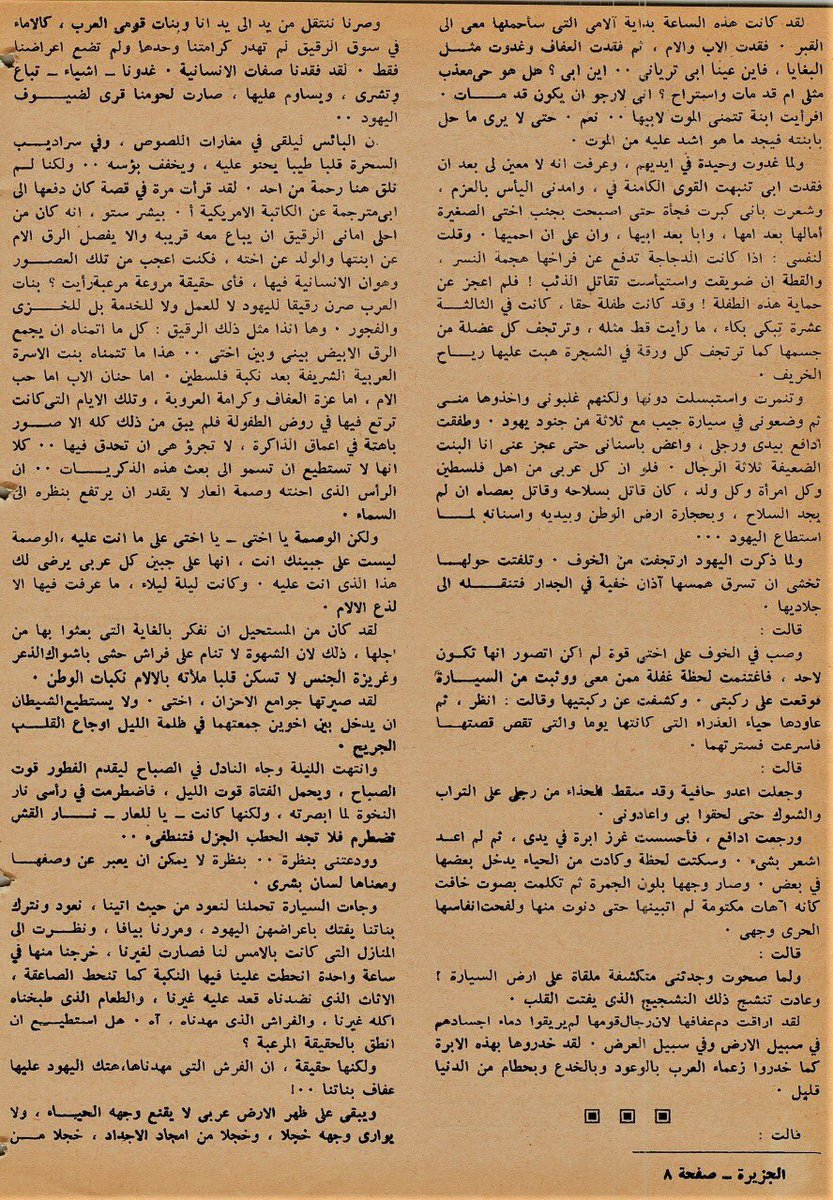 لقد كانت هذه الساعة بداية آلامى التى سأحملها معى الى
القبر ٠ فقدت الاب والام ، ثم فقدت العفاف وغدوت مثـــل
البغايا ، فاين عينا ابى ترياني ٠٠ اين ابى ؟ هل هو حى معذب
مثلى ام قد مات واستراح ؟ انى لارجو ان يكون قد مـــات ٠
افرأيت ابنة تتمنى الموت لابيها ٠٠ نعم ٠ حتى لا يرى ما حل
بابنته فيجد ما هو اشد عليه من الموت ٠
ولما غدوت وحيدة في ايديهم ، وعرفت انه لا معين لى بعد ان
فقدت ابى تنبهت القوى الكامنة في ، وامدنى اليأس بالعزم ،
وشعرت بانى كبرت فجأة حتى اصبحت بجنب اختى الصغيرة
أمالها بعد امها ، وابا بعد ابيها ، وان على ان احميها ٠ وقلت
لنفسى : اذا كانت الدجاجة تدفع عن فراخها هجمة النسر ،
والقطة ان ضويقت واستيأست تقاتل الذئب ! فلم اعجز عن
حماية هذه الطفلة ! وقد كانت طفلة حقا ، كانت في الثالثـــة
عشرة تبكى بكاء ، ما رأيت قط مثله ، وترتجف كل عضلة من
جسمها كما ترتجف كل ورقة في الشجرة هبت عليها ريـــاح
الخريف ٠
وتنمرت واستبسلت دونها ولكنهم غلبونى واخذوها منـــى
ثم وضعونى في سيارة جيب مع ثلاثة من جنود يهود ٠ وطفقت
أدافع بيدى ورجلى ، واعض باسنانى حتى عجز عنى انا البنت
الضعيفة ثلاثة الرجال ٠ فلو ان كل عربى من اهل فلسطين
وكل امرأة وكل ولد ، كان قاتل بسلاحه وقاتل بعصاه ان لم
يجد السلاح ، وبحجارة ارض الوطن وبيديه واسنانه لمـــا
استطاع اليهود ٠٠٠
ولما ذكرت اليهود ارتجفت من الخوف ٠ وتلفتت حولهـــا
تخشى ان تسرق همسها آذان خفية في الجدار فتنقـــله الى
جلاديها ٠
قالت :
وصب في الخوف على اختى قوة لم اكن اتصور انها تكـون
لاحد ، فاغتنمت لحظة غفلة ممن معى ووثبت من السيـــارة
فوقعت على ركبتى ٠ وكشفت عن ركبتيها وقالت : انظر ، ثم
عاودها حياء العذراء التى كانتها يوما والتى تقص قصتهـــا
فاسرعت فسترتهما ٠
قالت :
وجعلت اعدو حافية وقد سقط الحذاء من رجلى على التراب
والشوك حتى لحقوا بى واعادونى ٠
ورجعت ادافع ، فأحسست غرز ابرة في يدى ، ثم لم اعـد
اشعر بشىء ٠ وسكتت لحظة وكادت من الحياء يدخل بعضها
في بعض ٠ وصار وجهها بلون الجمرة ثم تكلمت بصوت خافت
كأنه آهات مكتومة لم اتبينها حتى دنوت منها ولفحت انفاسها
الحرى وجهى ٠
قالت :
ولما صحوت وجدتنى متكشفة ملقاة على ارض السيارة !
وعادت تنشج ذلك النشيج الذى يفتت القلب ٠
لقد اراقت دم عفافها لان رجال قومها لم يريقوا دماء اجسادهم
في سبيل الارض وفي سبيل العرض ٠ لقد خدروها بهذه الابرة
كما خدروا زعماء العرب بالوعود وبالخدع وبحطام من الدنيا
قليل ٠
قالت :
الجزيرة ــ صفحة ٨
وصرنا ننتقل من يد الى يد انا وبنات قومى العرب ، كالاماء
في سوق الرقيق لم تهدر كرامتنا وحدها ولم تضع اعراضنا
فقط ٠ لقد فقدنا صفات الانسانية ٠ غدونا ــ اشياء ــ تباع
وتشرى ، ويساوم عليها ، صارت لحومنا قرى لضيـــوف
اليهود ٠٠
ن البائس ليلقى في مغارات اللصوص ، وفي سراديـــب
السحرة قلبا طيبا يحنو عليه ، ويخفف بؤسه ٠٠ ولكنا لـم
نلق هنا رحمة من احد ٠ لقد قرأت مرة في قصة كان دفعها الى
ابى مترجمة عن الكاتبة الامريكية أ ٠ بيشر ستو ، انه كان من
احلى امانى الرقيق ان يباع معه قريبه والا يفصل الرق الام
عن ابنتها والولد عن اخته ، فكنت اعجب من تلك العصـــور
وهوان الانسانية فيها ، فأى حقيقة مروعة مرعبة رأيت ؟ بنات
العرب صرن رقيقا لليهود لا للعمل ولا للخدمة بل للخـــزى
والفجور ٠ وها انذا مثل ذلك الرقيق : كل ما اتمناه ان يجمع
الرق الابيض بينى وبين اختى ٠٠ هذا ما تتمناه بنت الاسرة
العربية الشريفة بعد نكبة فلسطين ٠ اما حنان الاب اما حب
الام ، اما عزة العفاف وكرامة العروبة ، وتلك الايام التى كانت
ترتع فيها في روض الطفولة فلم يبق من ذلك كله الا صـــور
باهتة في اعماق الذاكرة ، لا تجرؤ هى ان تحدق فيها ٠٠ كلا
انها لا تستطيع ان تسمو الى بعث هذه الذكريـــات ٠٠ ان
الرأس الذى احنته وصمة العار لا يقدر ان يرتفع بنظره الى
السماء ٠
ولكن الوصمة يا اختى ــ يا اختى على ما انت عليه ، الوصمة
ليست على جبينك انت ، انها على جبين كل عربى يرضى لك
هذا الذى انت عليه ٠ وكانت ليلة ليلاء ، ما عرفت فيها الا
لذع الالام ٠
لقد كان من المستحيل ان نفكر بالغاية التى بعثوا بها من
اجلها ، ذلك لان الشهوة لا تنام على فراش حشى باشواك الذعر
وغريزة الجنس لا تسكن قلبا ملأته بالالام نكبات الوطن ٠
لقد صيرتها جوامع الاحزان ، اختى ٠ ولا يستطيع الشيطان
ان يدخل بين اخوين جمعتهما في ظلمة الليل اوجاع القلـــب
الجريح ٠
وانتهت الليلة وجاء النادل في الصباح ليقدم الفطور قوت
الصباح ، ويحمل الفتاة قوت الليل ، فاضطرمت في رأسى نار
النخوة لما ابصرته ، ولكنها كانت ــ يا للعار ــ نـــار القش
تضطرم فلا تجد الحطب الجزل فتنطفىء ٠٠
وودعتنى بنظرة ٠٠ بنظرة لا يمكن ان يعبر عن وصفهـــا
ومعناها لسان بشرى ٠
وجاءت السيارة تحملنا لنعود من حيث اتينا ، نعود ونترك
بناتنا يفتك باعراضهن اليهود ، ومررنا بيافا ، ونظـــرت الى
المنازل التى كانت بالامس لنا فصارت لغيرنا ، خرجنا منها في
ساعة واحدة انحطت علينا فيها النكبة كما تنحط الصاعقة ،
الاثاث الذى نضدناه قعد عليه غيرنا ، والطعام الذى طبخناه
اكله غيرنا ، والفراش الذى مهدناه ، آه ٠ هل استطيـــع ان
انطق بالحقيقة المرعبة ؟
ولكنها حقيقة ، ان الفرش التى مهدناها، هتك اليهود عليها
عفاف بناتنا ٠٠!
ويبقى على ظهر الارض عربى لا يقنع وجهه الحيـــاء ، ولا
يوارى وجهه خجلا ، وخجلا من امجاد الاجداد ، خجلا مـــن